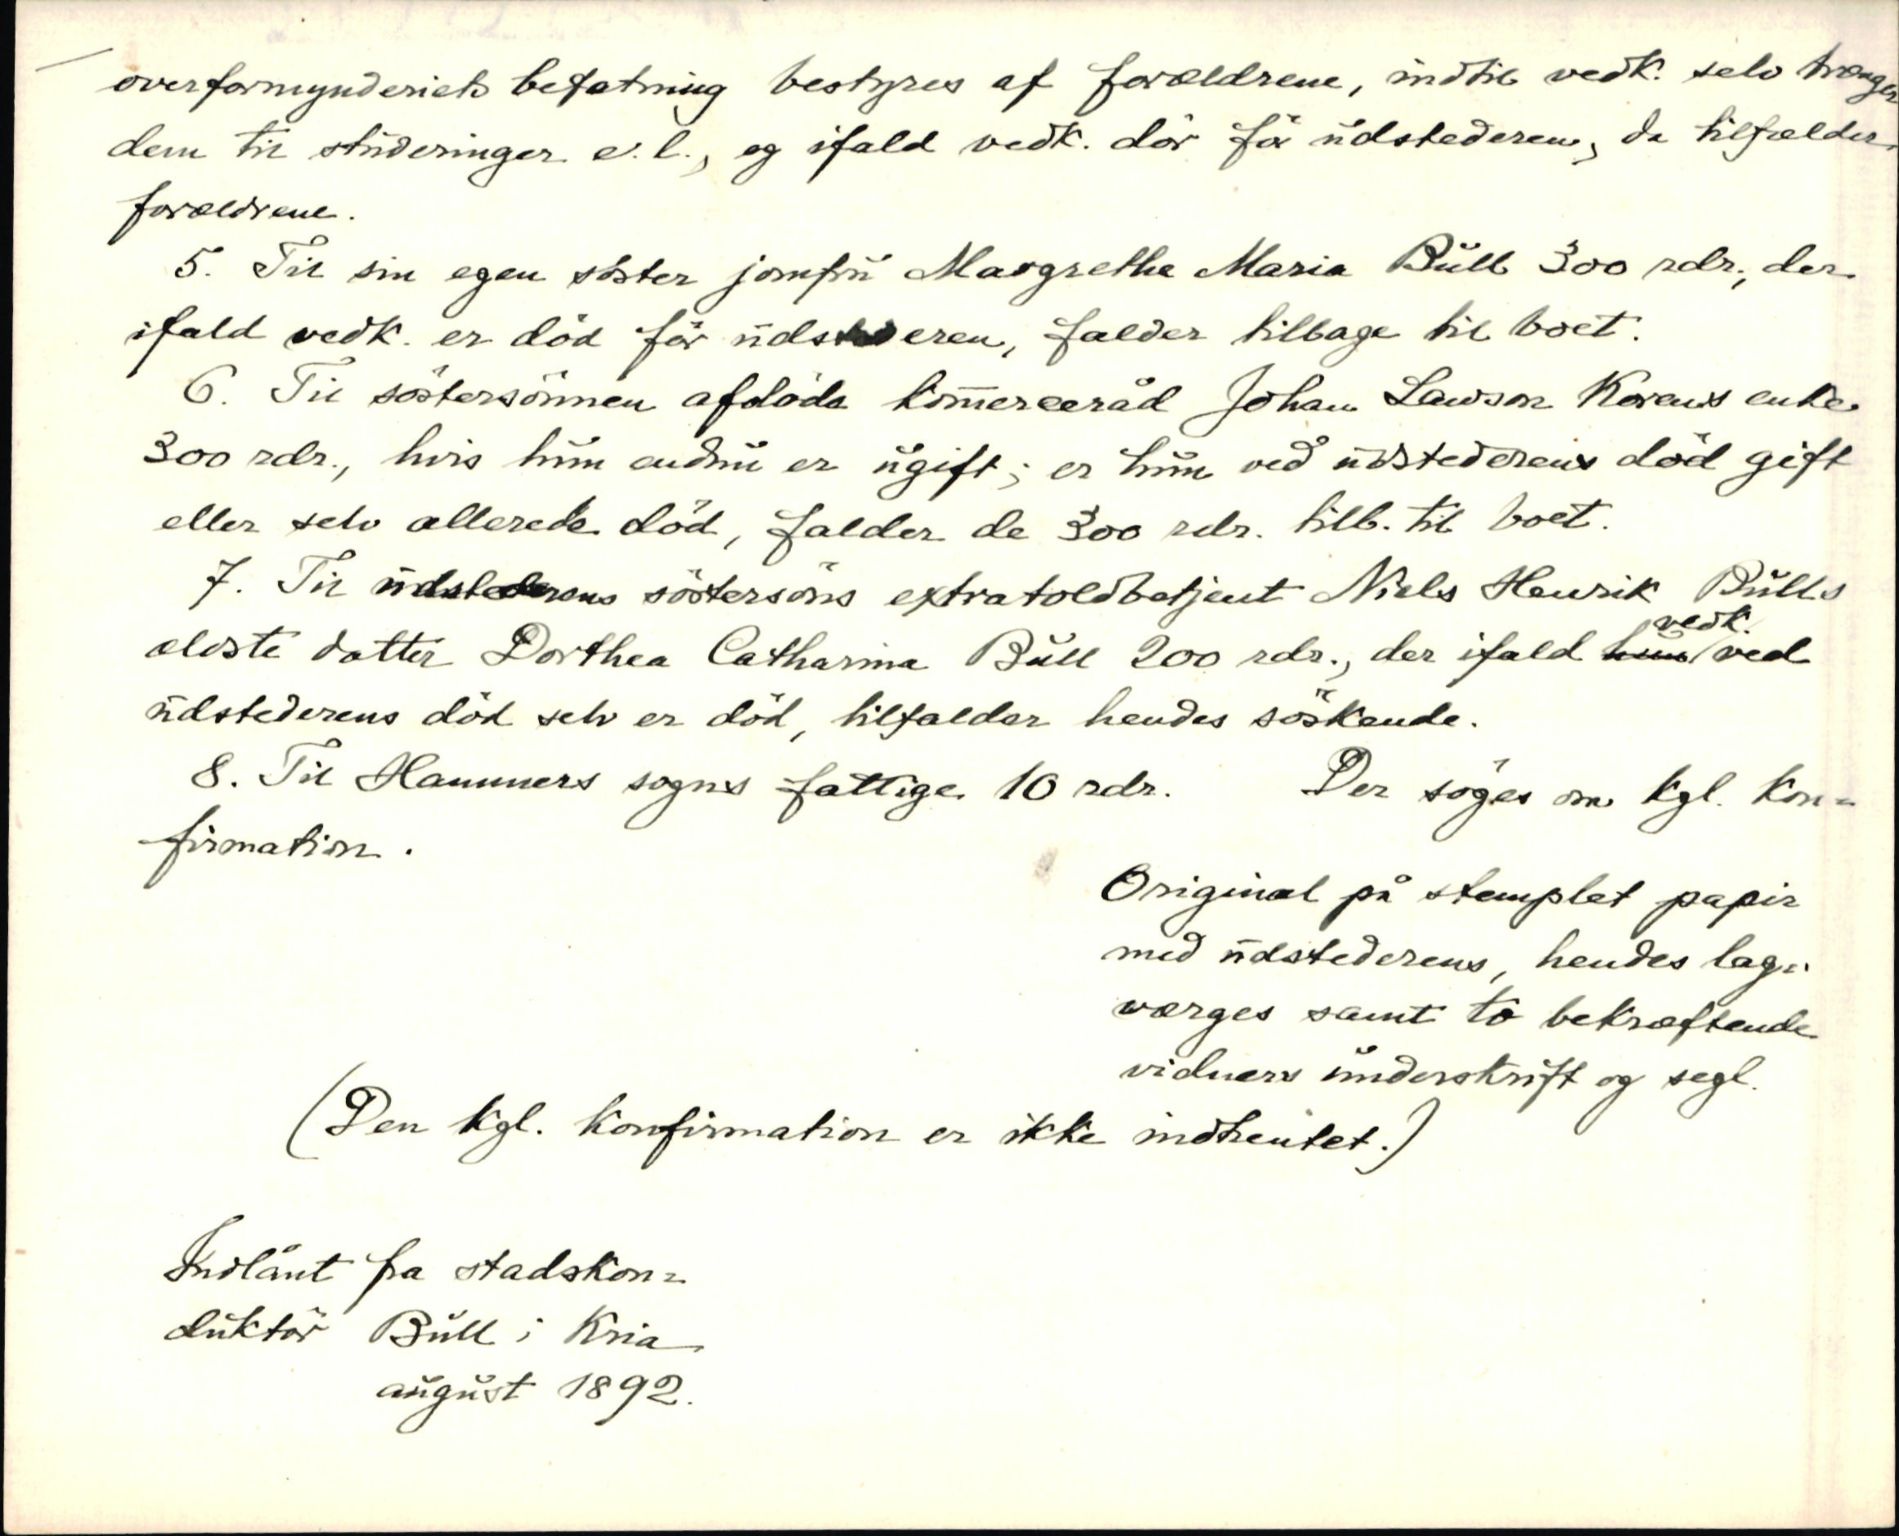 overformynderiets befatning bestyres af forældrene, indtil vedk. selv trænger
dem til studeringer e. l., og ifald vedk. dör för udstederen, da tilfalder
forældrene.
5. Til sin egen söster jomfru Margrethe Maria Bull 300 rdr., der
ifald vedk. er död för udstederen, falder tilbage til boet.
6. Til söstersönnen afdöde kommerceråd Johan Lawson Korens enke
300 rdr., hvis hun endnu er ugift; er hun ved udstederens död gift
eller selv allerede död, falder de 300 rdr. tilb. til boet.
7. Til udstederens söstersöns extratoldbetjent Niels Henrik Bulls
eldste datter Dorthea Catharina Bull 200 rdr., der ifald hun vedk. ved
udstederens död selv er död, tilfalder hendes söskende.
8. Til Hammers sogns fattige 10 rdr. Der söges om kgl. kon=
firmation.
Original på stemplet papir
med udstederens, hendes lag=
værges samt to bekræftende
vidners underskrift og segl.
(Den kgl. konfirmation er ikke indhentet.)
Indlånt fra stadskon=
duktör Bull i Kria
august 1892.